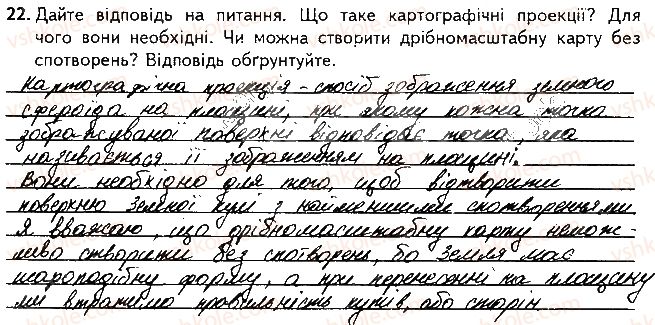 22. Дайте відповідь на питання. Що таке картографічні проекції? Для
чого вони необхідні. Чи можна створити дрібномасштабну карту без
спотворень? Відповідь обґрунтуйте.
Картографічна проекція - спосіб зображення земного
сфероїда на площині, при якому кожна точка
зображуваної поверхні відповідає точка, яка
називається її зображенням на площині.
Вони необхідно для того, щоб відтворити
поверхню Земної кулі з найменшими спотвореннями
я вважаю, що дрібномасштабну карту немож-
ливо створити без спотворень, бо Земля має
шароподібну форму, а при перенесенні на площину
ми втратимо правильність кутів, або сторін